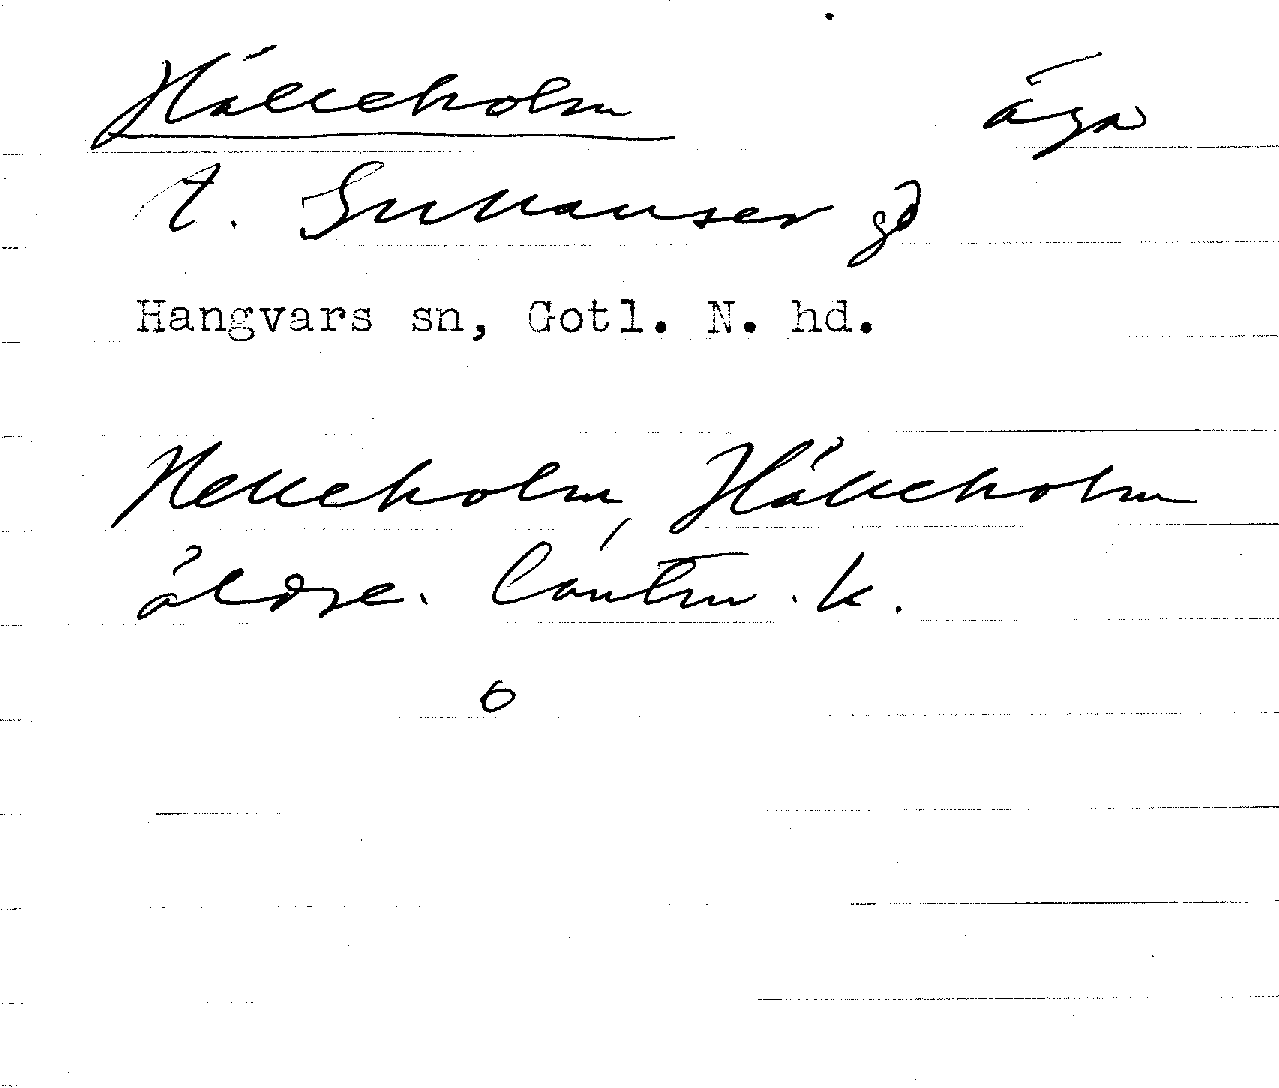 Hälleholm äga
t. Snausar gd
Hangvars sn, Gotl. N. hd.
Helleholm, Hälleholm
äldre. Lantm. k.